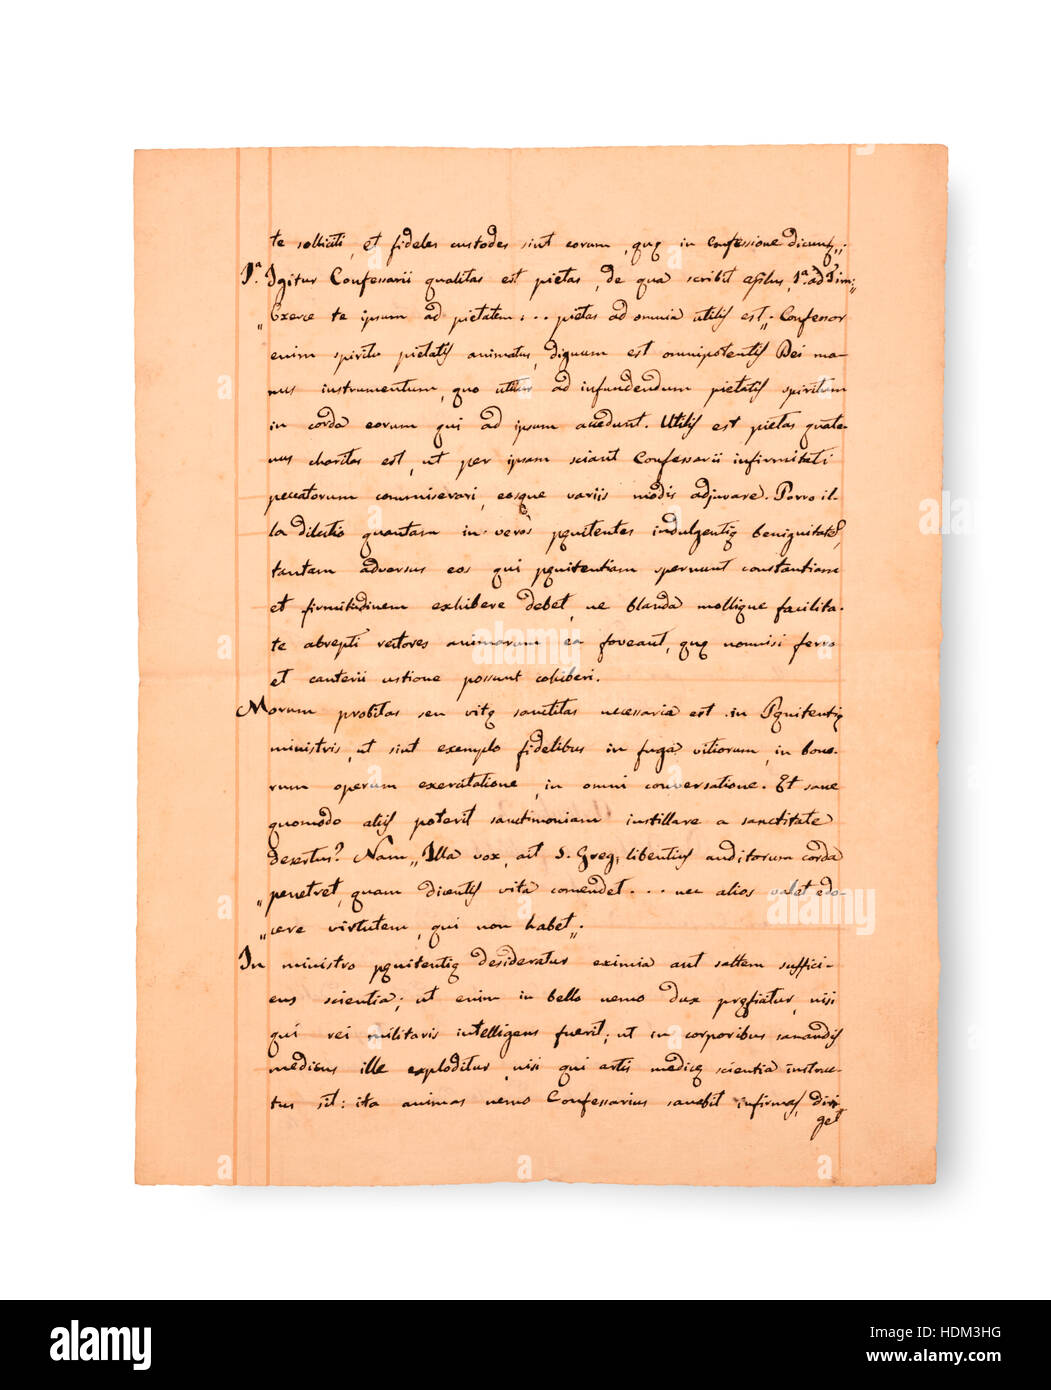 te solliciti, et fideles custodes sint eorum, quę in Confessione dicunt„.
1.ª Igitur Confessarii qualitas est pietas, de qua scribit Aplus, 1.ª ad Tim:
„Exerce te ipsum ad pietatem: .. pietas ad omnia utilis est„. Confessor
enim spiritu pietatis animatus, dignum est omnipotentis Dei ma-
nus instrumentum, quo utitur ad infundendum pietatis spiritum
in corda eorum qui ad ipsum accedunt. Utilis est pietas quate-
nus charitas est, ut per ipsam sciant Confessarii infirmitati
peccatorum commiserari, eosque variis modis adjuvare. Porro il-
la dilectio quantam in veros pęnitentes indulgentię benignitatis,
tantam adversus eos qui pęnitentiam spernunt constantiam
et firmitudinem exhibere debet, ne blanda mollique facilita-
te abrepti rectores animarum ea foveant, quę nonnisi ferro
et canterii ustione possunt cohiberi.
Morum probitas seu vitę sanctitas necessaria est in Pęnitentię
ministris, ut sint exemplo fidelibus in fuga vitiorum, in bono-
rum operum exercitatione, in omni conversatione. Et sane
quomodo aliis poterit sanctimoniam instillare a sanctitate
desertus? Nam „Illa vox, ait S. Greg; libentius auditorum corda
„penetret, quam dicentis vita comendet ... nec alios valet edo-
„cere virtutem, qui non habet„.
In ministro pęnitentię desideratur eximia aut saltem suffici-
ens scientia; ut enim in bello nemo dux pręficiatur, nisi
qui rei militaris intelligens fuerit; ut in corporibus sanandis
medicus ille exploditur, nisi qui artis medicę scientia instruc-
tus sit: ita animas nemo Confessarius sanabit infirmas, diri-
get
alamy
Image ID: HDM3HG
www.alamy.com